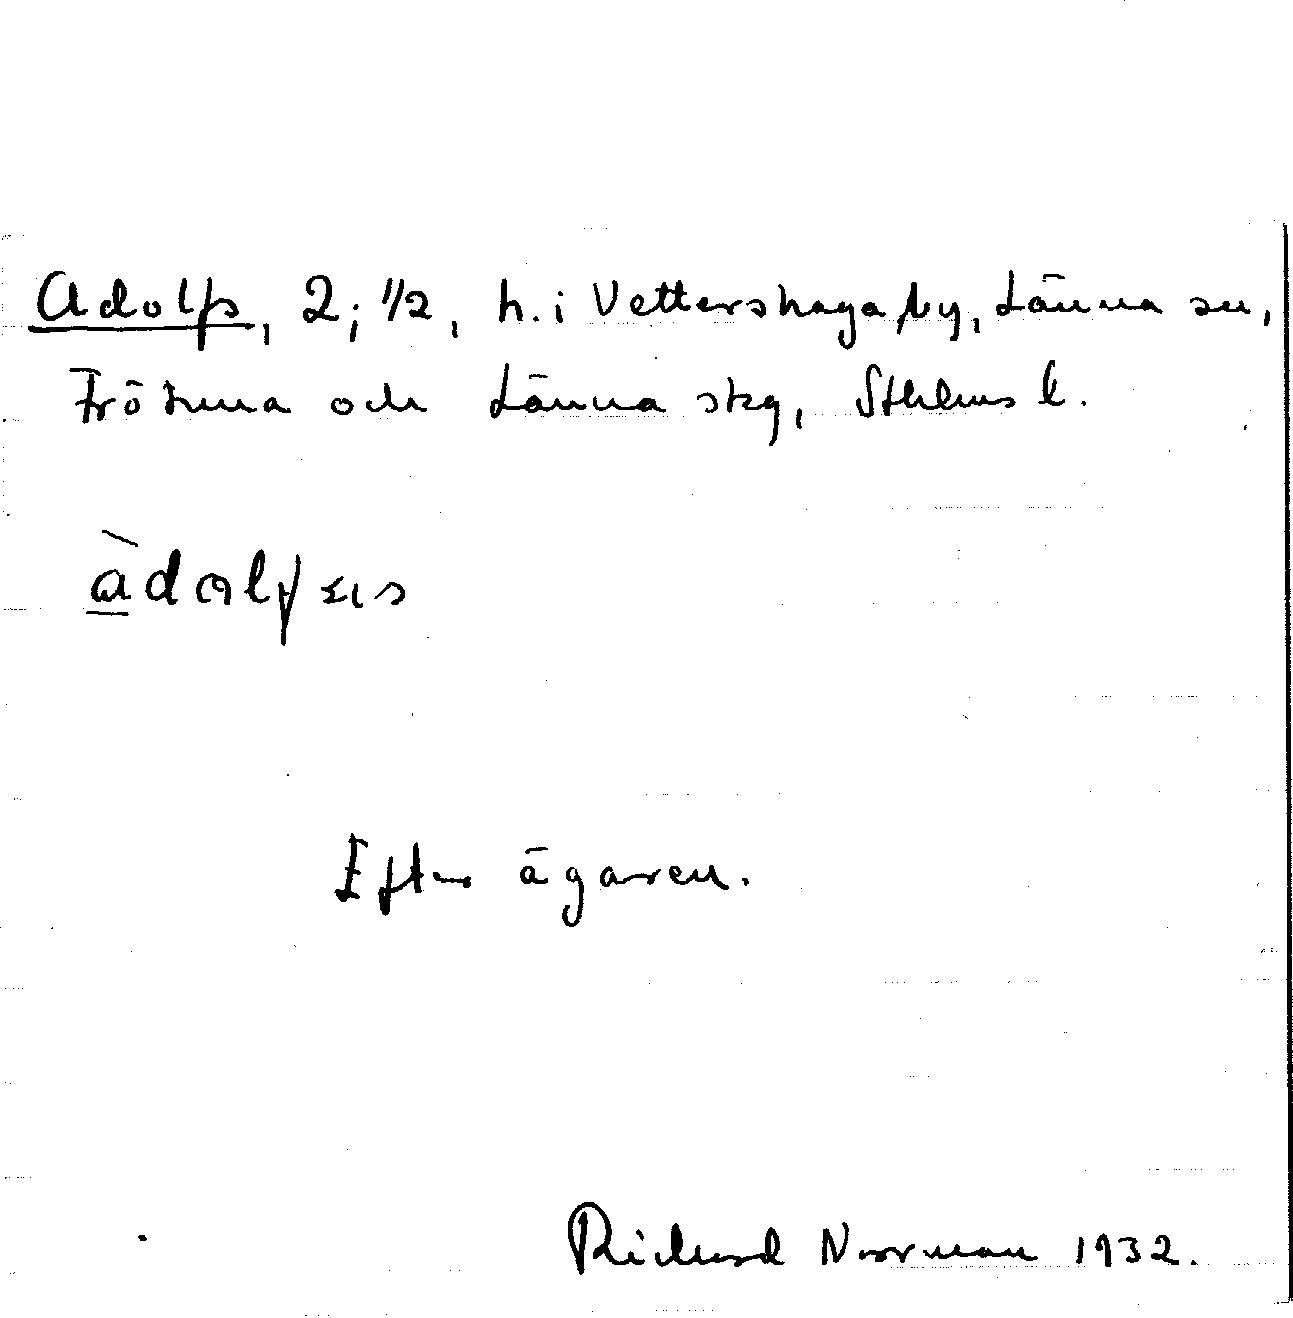 Adolfs, 2; 1/2, h. i Vettershaga by, Länna sn,
Frötuna och Länna skg, Sthlms l.
àdɑlfs
Efter ägaren.
Richard Norrman 1932.